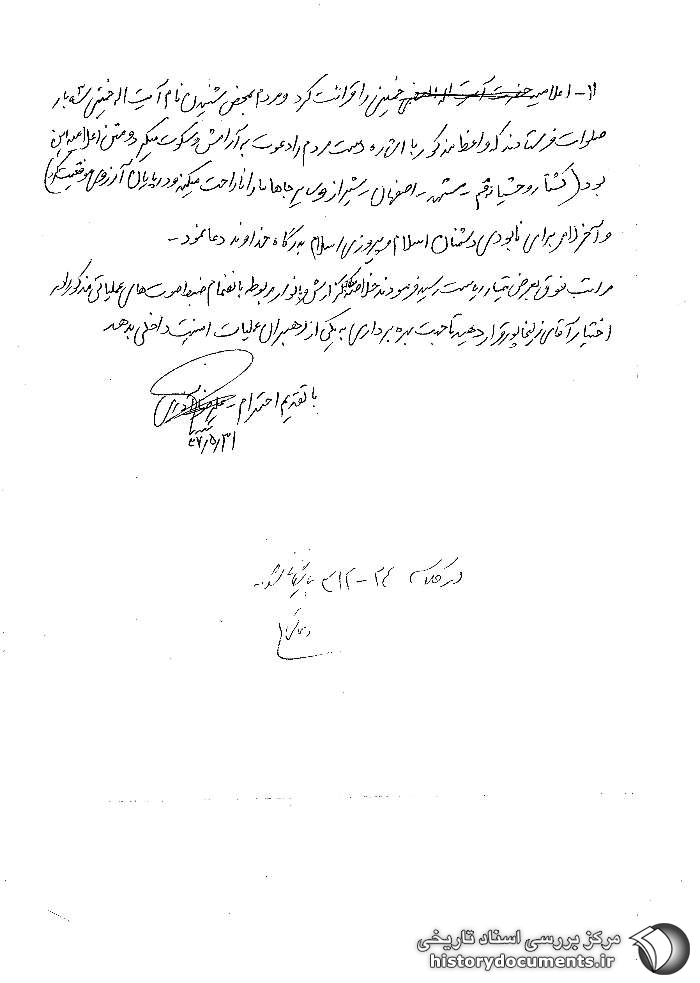 ۱۱- اعلامیه حضرت آیت اله خمینی را قرائت کرد و مردم بمحض شنیدن نام آیت اله خمینی سه بار
صلوات فرستادند که واعظ مذکور با اشاره دست مردم را دعوت به آرامش و سکوت میکرد و متن اعلامیه این
بود (کشتار وحشیانه قم - مشهد - اصفهان - شیراز و سایر جاها ما را ناراحت میکند و در پایان آرزوی موفقیت کرد)
و آخر الامر برای نابودی دشمنان اسلام و پیروزی اسلام بدرگاه خداوند دعا نمود -
مراتب فوق بعرض تیمسار ریاست رسید فرمودند خلاصه گزارش و نوار مربوطه بانضمام ضبط صوت های عملیاتی مذکور را در
اختیار آقای زلیخاپور قرار دهید تا جهت بهره برداری به یکی از رهبران عملیات امنیت داخلی بدهد
با تقدیم احترام -
۳۷/۵/۳۱
در کلاسه ۲۴-۳۱۲ بایگانی شود.
مرکز بررسی اسناد تاریخی
historydocuments.ir